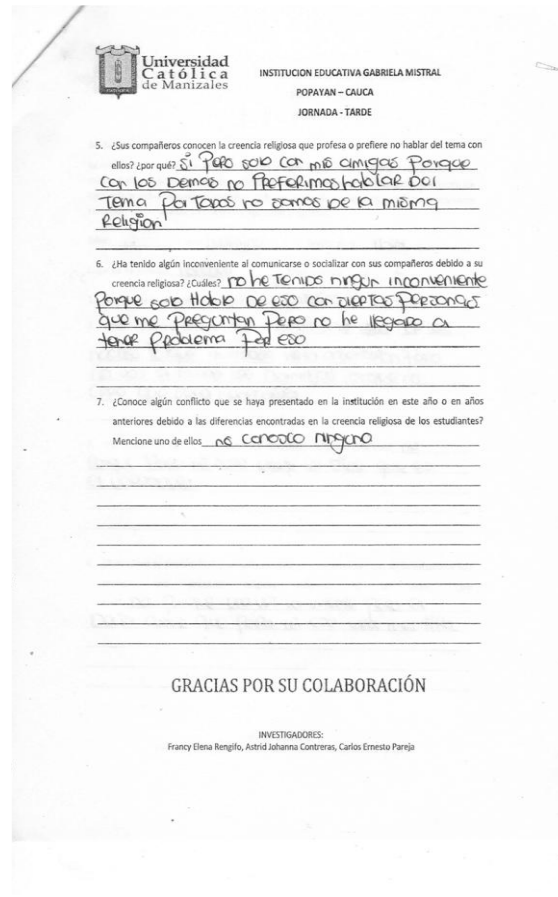 Universidad
Católica
de Manizales
INSTITUCION EDUCATIVA GABRIELA MISTRAL
POPAYAN – CAUCA
JORNADA - TARDE
5. ¿Sus compañeros conocen la creencia religiosa que profesa o prefiere no hablar del tema con
ellos? ¿por qué? Si Pero solo con mis amigas Porque
con los Demas no Preferimos hablar Del
Tema Por Todos no somos De la misma
Religion
6. ¿Ha tenido algún inconveniente al comunicarse o socializar con sus compañeros debido a su
creencia religiosa? ¿Cuáles? no he Tenido ningun inconveniente
Porque solo Hablo De eso con ciertas Personas
que me Preguntan Pero no he llegado a
tener Problema Por eso
7. ¿Conoce algún conflicto que se haya presentado en la institución en este año o en años
anteriores debido a las diferencias encontradas en la creencia religiosa de los estudiantes?
Mencione uno de ellos no conosco ninguno
GRACIAS POR SU COLABORACIÓN
INVESTIGADORES:
Francy Elena Rengifo, Astrid Johanna Contreras, Carlos Ernesto Pareja